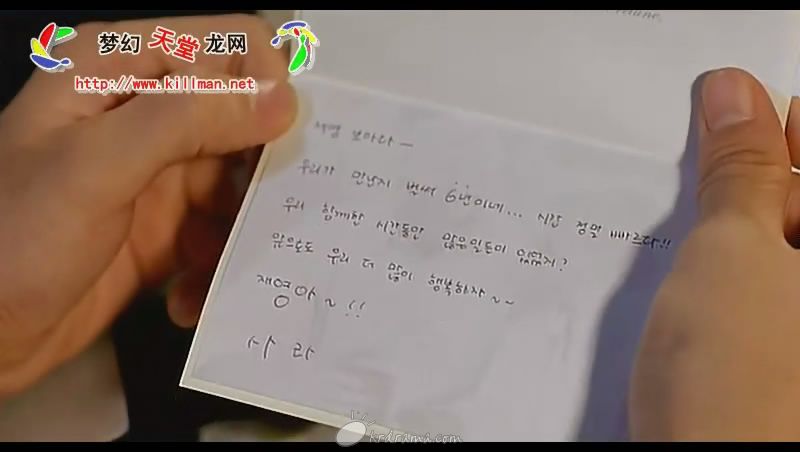 梦幻天堂龙网
http://www.killman.net
재영 보아라 —
우리가 만난지 벌써 6년이네... 시간 정말 빠르다!!
우리 함께한 시간동안 많은일들이 있었지?
앞으로도 우리 더 많이 행복하자~~
재영아~!!
사라
krdrama.com